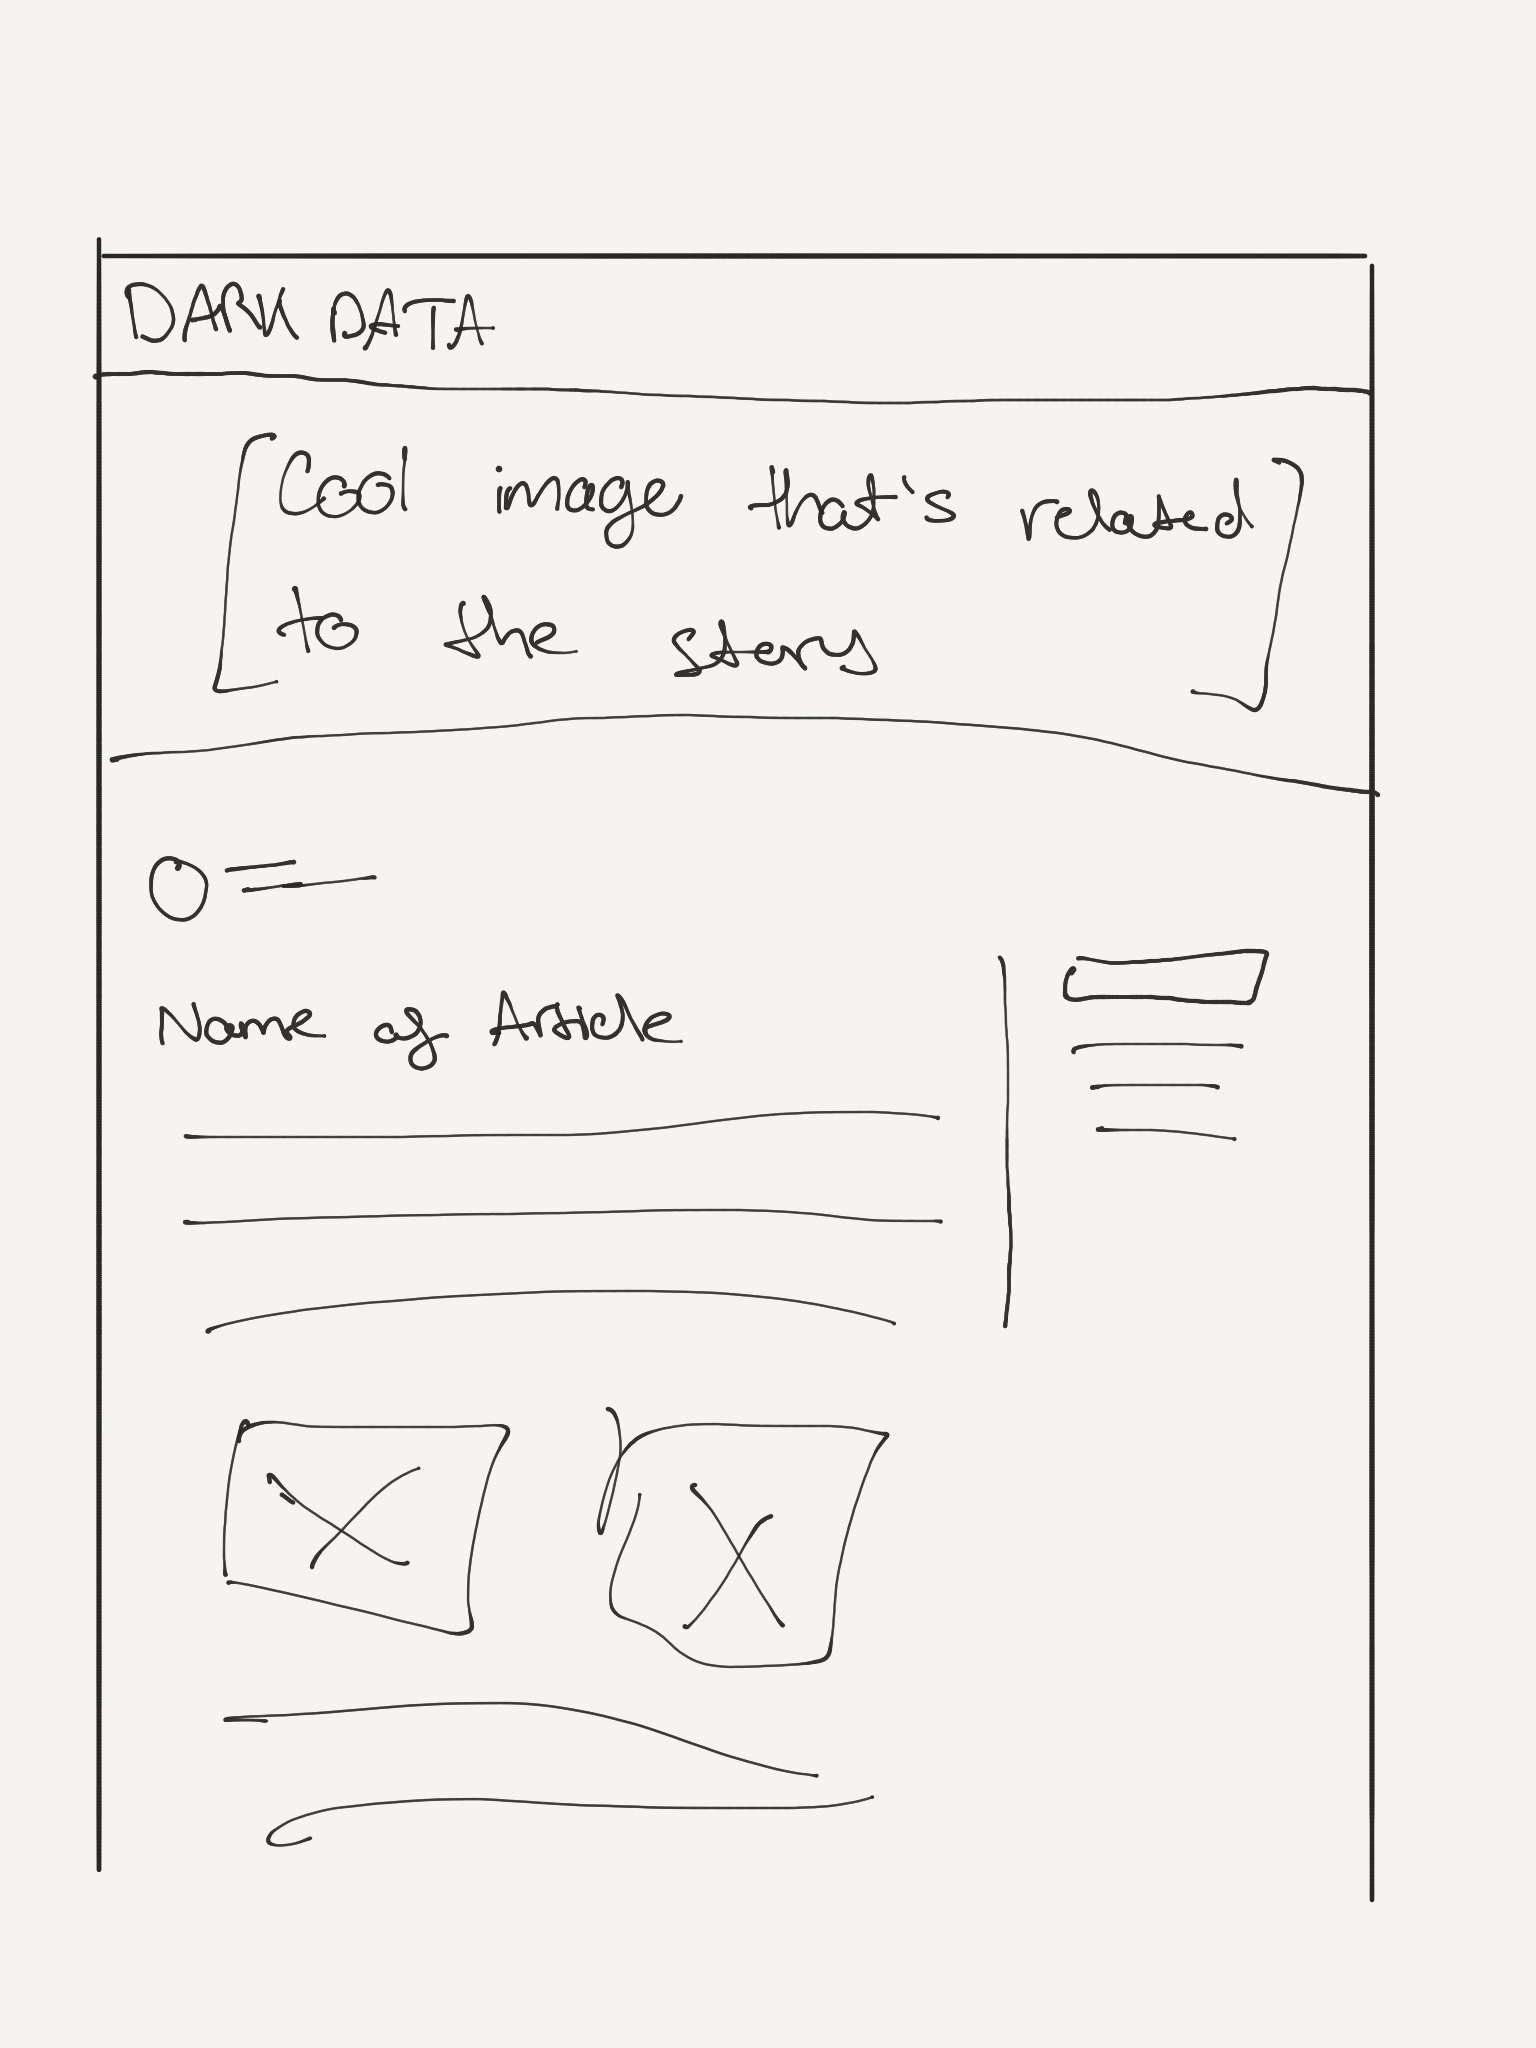 DARK DATA
Cool image that's related
to the story
Name of Article